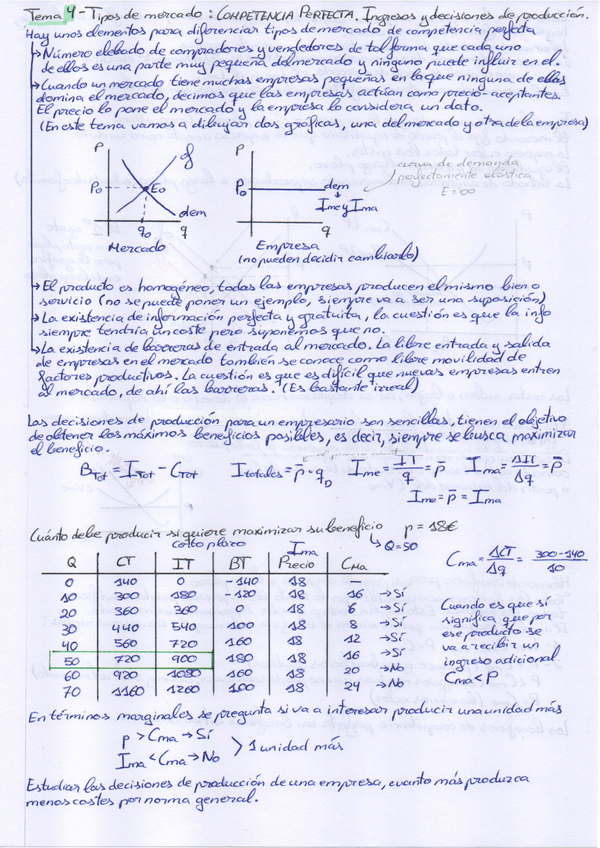 Tema 4 - Tipos de mercado: COMPETENCIA PERFECTA. Ingresos y decisiones de producción.
Hay unos elementos para diferenciar tipos de mercado de competencia perfecta
→ Número elebado de compradores y vendedores de tal forma que cada uno
de ellos es una parte muy pequeña del mercado y ninguno puede influir en el.
→ Cuando un mercado tiene muchas empresas pequeñas en la que ninguna de ellas
domina el mercado, decimos que las empresas actúan como precio-aceptantes.
El precio lo pone el mercado y la empresa lo considera un dato.
(En este tema vamos a dibujar dos gráficas, una del mercado y otra de la empresa)
P
Po
Eo
dem
qo
q
Mercado
P
Po
dem
Ime y Ima
q
Empresa
(no pueden decidir cambiarlo)
curva de demanda
perfectamente elástica
E = ∞
→ El producto es homogéneo, todas las empresas producen el mismo bien o
servicio (no se puede poner un ejemplo, siempre va a ser una suposición)
→ La existencia de información perfecta y gratuita, la cuestión es que la info
siempre tendría un coste pero suponemos que no.
→ La existencia de barreras de entrada al mercado. La libre entrada y salida
de empresas en el mercado también se conoce como libre movilidad de
factores productivos. La cuestión es que es difícil que nuevas empresas entren
al mercado, de ahí las barreras. (Es bastante irreal)
Las decisiones de producción para un empresario son sencillas, tienen el objetivo
de obtener los máximos beneficios posibles, es decir, siempre se busca maximizar
el beneficio.
BTot = ITot - CTot Itotales = p̄ · qD Ime = IT/q = p̄ Ima = ΔIT/Δq = p̄
Ime = p̄ = Ima
Cuánto debe producir si quiere maximizar su beneficio p = 18€
↳ Q = 50
corto plazo
Ima
Q CT IT BT Precio CMa
0 140 0 -140 18 —
10 300 180 -120 18 16 → Sí
20 360 360 0 18 6 → Sí
30 440 540 100 18 8 → Sí
40 560 720 160 18 12 → Sí
50 720 900 180 18 16 → Sí
60 920 1080 160 18 20 → No
70 1160 1260 100 18 24 → No
Cma = ΔCT/Δq = 300-140/10
Cuando es que sí
significa que por
ese producto se
va a recibir un
ingreso adicional
Cma < P
En términos marginales se pregunta si va a interesar producir una unidad más
p > Cma → Sí
Ima < Cma → No
> 1 unidad más
Estudiar las decisiones de producción de una empresa, cuanto más produzca
menos costes por norma general.